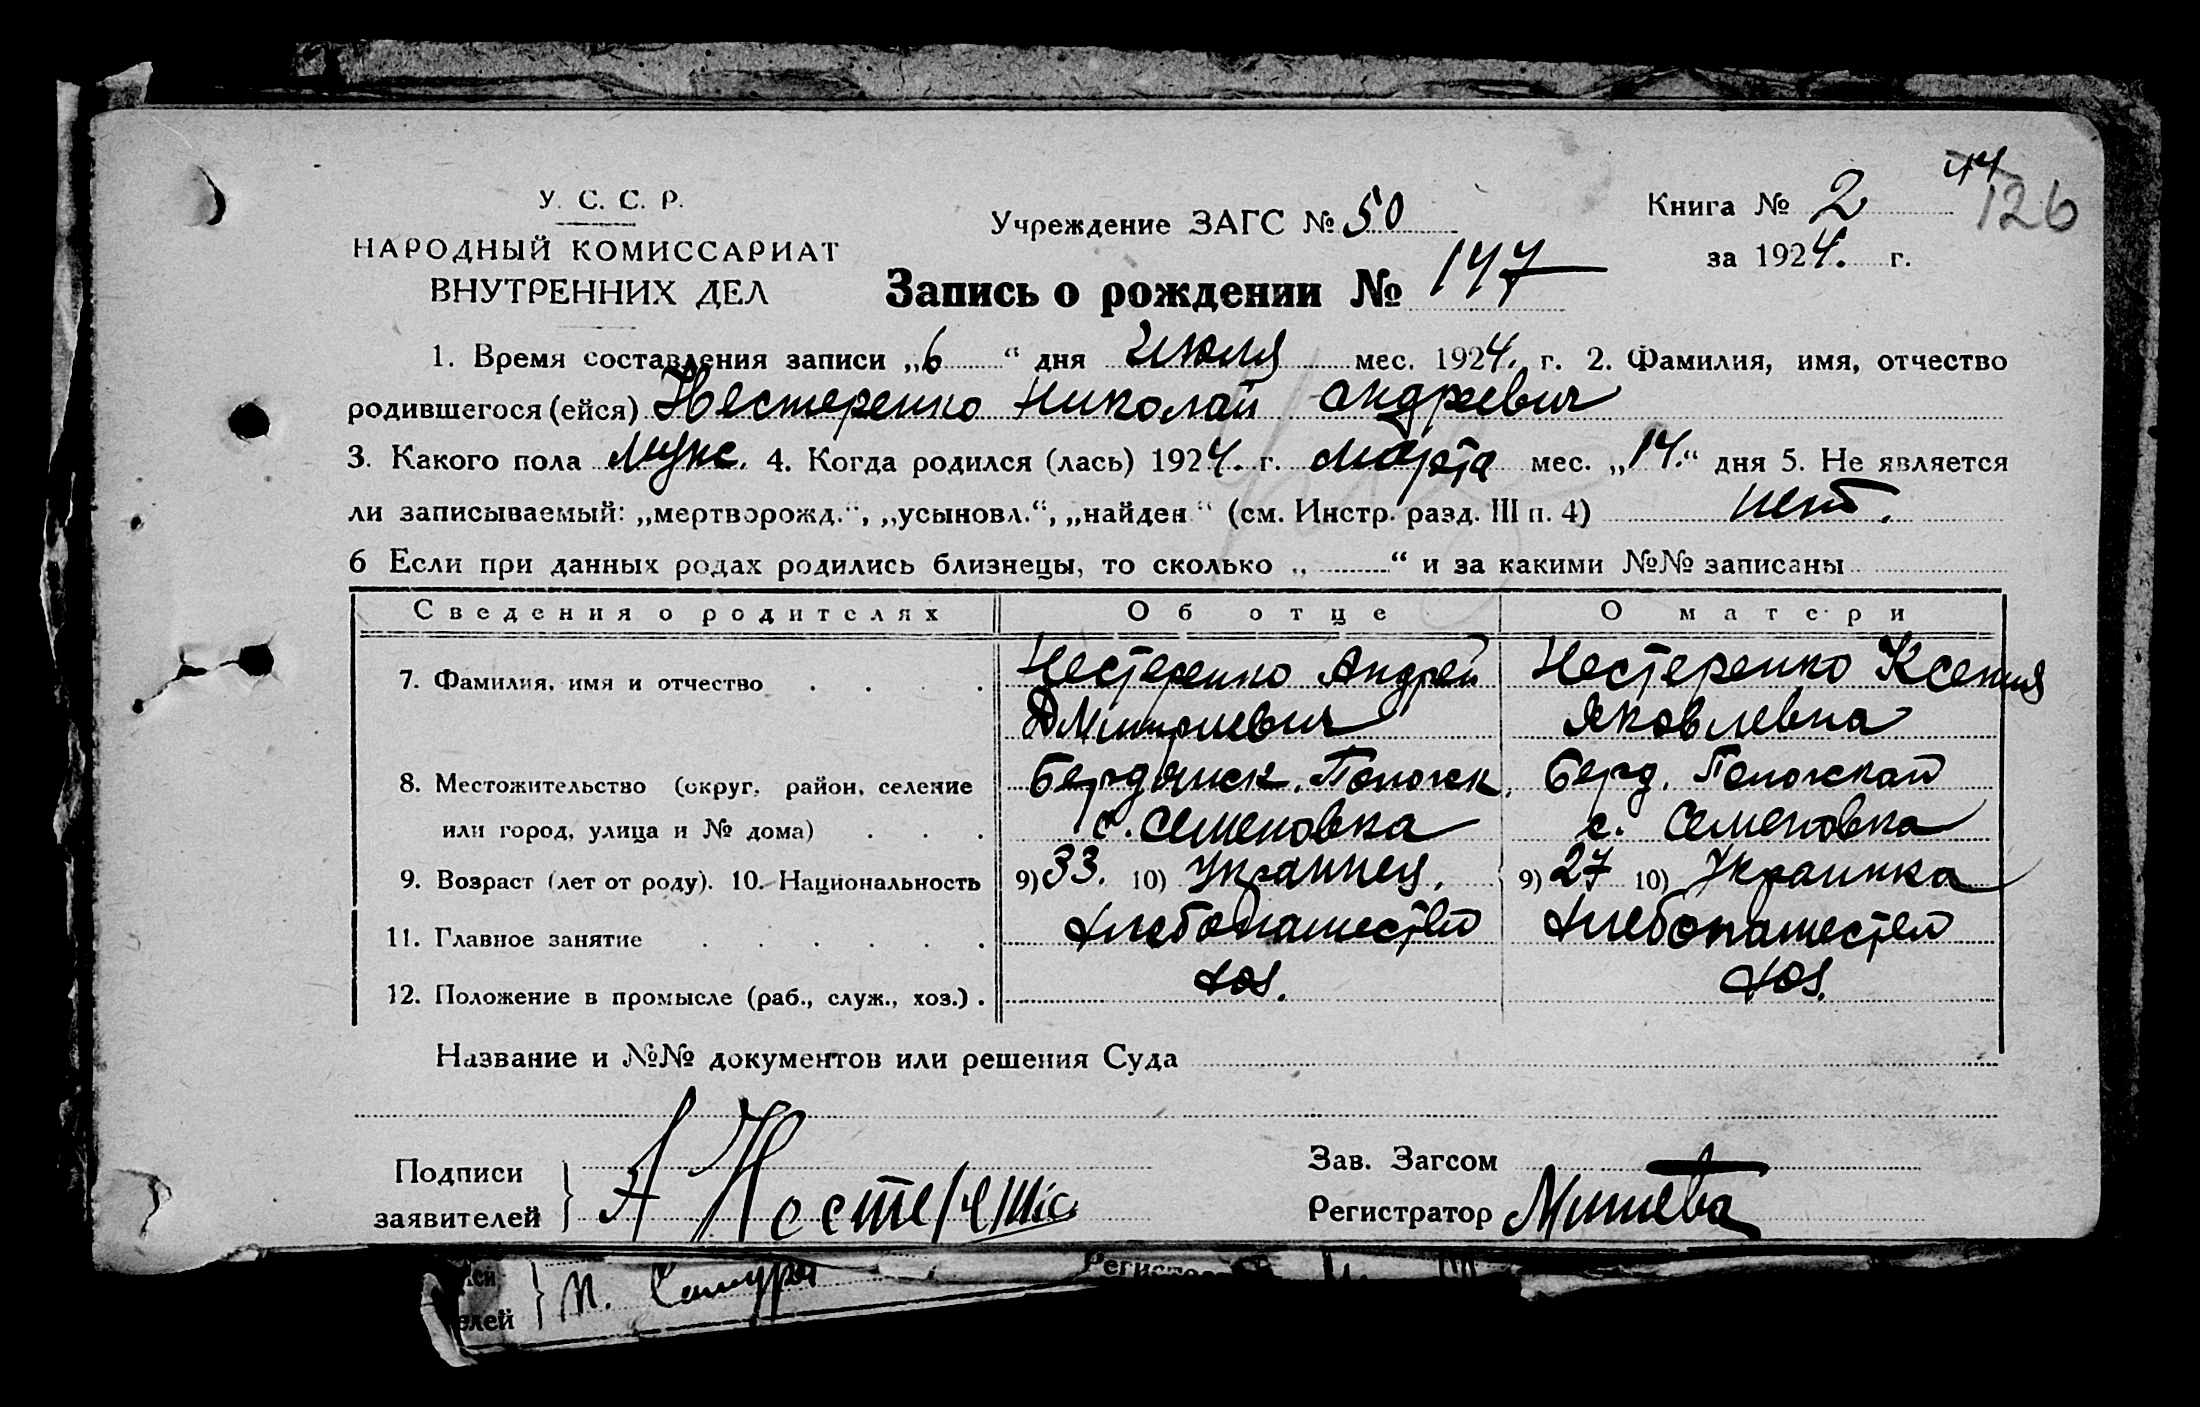 44
126
У. С. С. Р.
НАРОДНЫЙ КОМИССАРИАТ
ВНУТРЕННИХ ДЕЛ
Учреждение ЗАГС № 50
Книга № 2
за 1924. г.
Запись о рождении № 147
1. Время составления записи „6“ дня июля мес. 1924. г. 2. Фамилия, имя, отчество
родившегося (ейся) Нестеренко Николай Андреевич
3. Какого пола мужс. 4. Когда родился (лась) 1924. г. марта мес. „14.“ дня 5. Не является
ли записываемый: „мертворожд.“, „усыновл.“, „найден“ (см. Инстр. разд. III п. 4) нет.
6 Если при данных родах родились близнецы, то сколько „ “ и за какими №№ записаны
Сведения о родителях Об отце О матери
7. Фамилия, имя и отчество Нестеренко Андрей Нестеренко Ксения
Дмитриевич Яковлевна
8. Местожительство (округ, район, селение Бердянск. Пологск. Берд. Пологской
или город, улица и № дома) с. Семеновка с. Семеновка
9. Возраст (лет от роду). 10. Национальность 9) 33. 10) Украинец. 9) 27 10) Украинка
11. Главное занятие хлебопашество хлебопашество
12. Положение в промысле (раб., служ., хоз.) . хоз. хоз.
Название и №№ документов или решения Суда
Подписи
заявителей
А Нестеренко
Зав. Загсом
Регистратор
лей